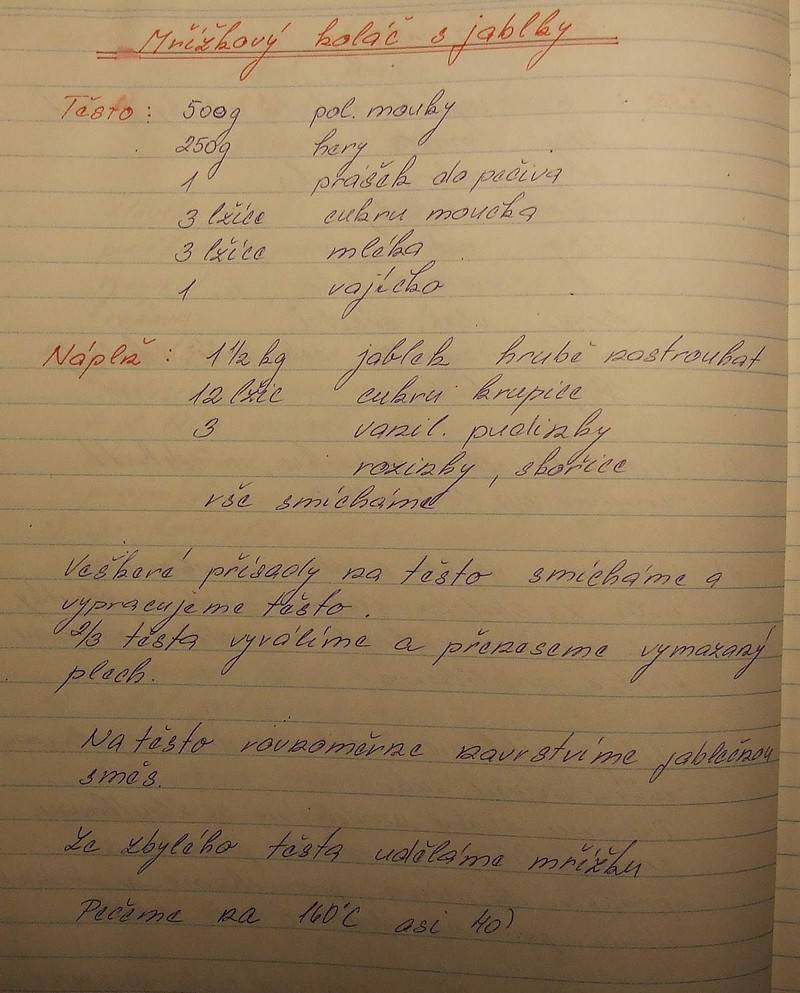 Mřížkový koláč s jablky
Těsto : 500g pol. mouky
250g hery
1 prášek do pečiva
3 lžíce cukru moučka
3 lžíce mléka
1 vajíčko
Náplň : 1 1/2 kg jablek hrubě nastrouhat
12 lžic cukru krupice
3 vanil. pudinky
rozinky, skořice
vše smícháme
Veškeré přísady na těsto smícháme a
vypracujeme těsto.
2/3 těsta vyválíme a přeneseme vymazaný
plech.
Na těsto rovnoměrne navrstvíme jablečnou
směs.
Ze zbylého těsta uděláme mřížku
Pečeme na 160°C asi 40'